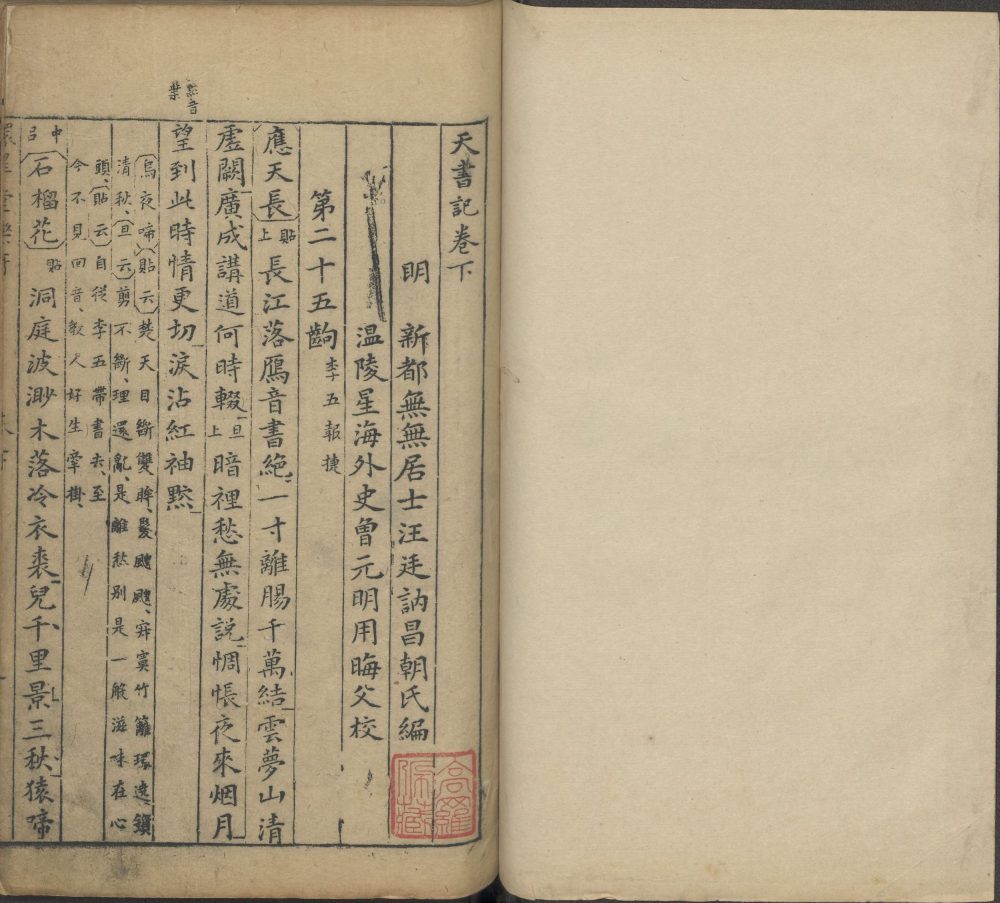 天書記卷下
明　新都無無居士汪廷訥昌朝氏編
温陵星海外史曾元明用晦父校
第二十五齣 李五報捷
應天長 貼上 長江落鴈音書絕一寸離腸千萬結雲夢山清
虛闕廣成講道何時輟 旦上 暗裡愁無處說惆悵夜來烟月
望到此時情更切淚沾紅袖黦
黦音
烏夜啼 貼云 楚天目斷雙眸鬢颼颼寂寞竹籬環遶鎖
清秋 旦云 剪不斷理還亂是離愁别是一般滋味在心
頭 貼云 自從李五帶書去至
今不見回音教人好生牽掛
中呂 石榴花 貼 洞庭波渺木落冷衣裘兒千里景三秋猿啼
高羅佩藏